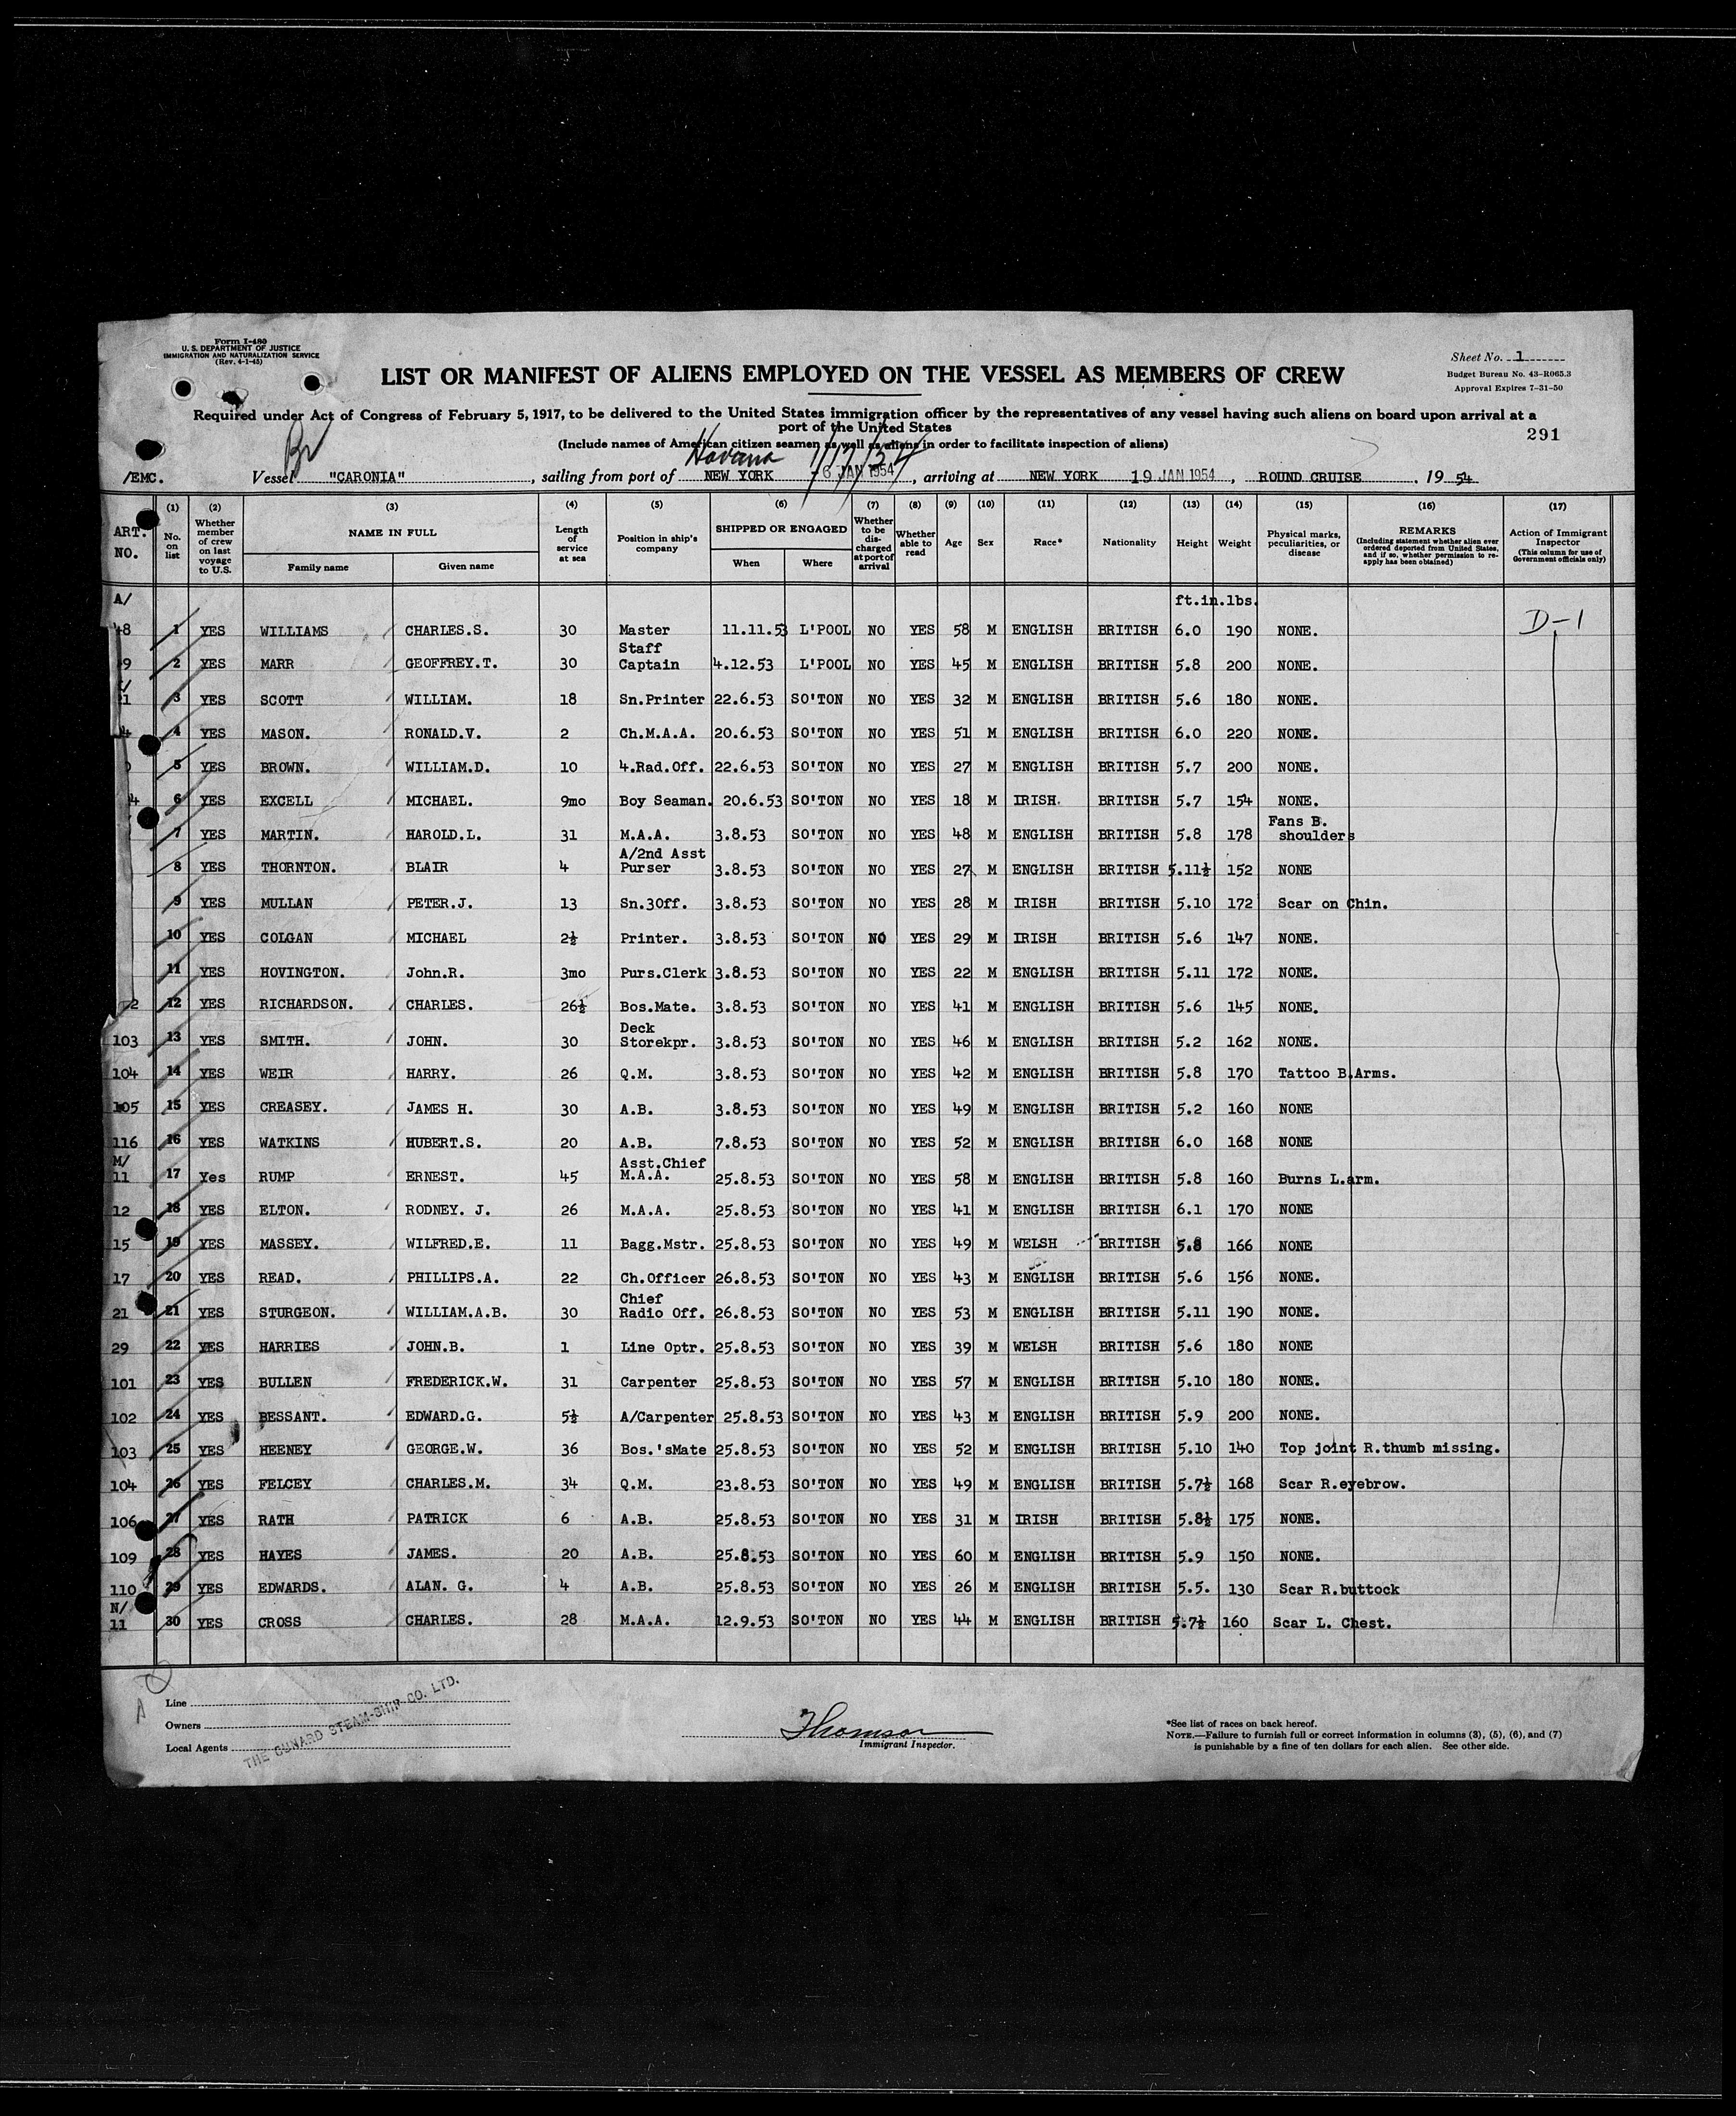 Form I-480
U. S. DEPARTMENT OF JUSTICE
IMMIGRATION AND NATURALIZATION SERVICE
(Rev. 4-1-45)
Sheet No. 1
Budget Bureau No. 43-R065.3
Approval Expires 7-31-50
LIST OR MANIFEST OF ALIENS EMPLOYED ON THE VESSEL AS MEMBERS OF CREW
Required under Act of Congress of February 5, 1917, to be delivered to the United States immigration officer by the representatives of any vessel having such aliens on board upon arrival at a
port of the United States
291
(Include names of American citizen seamen as well as aliens in order to facilitate inspection of aliens)
Br Havana 1/17/54
/EMC. Vessel "CARONIA", sailing from port of NEW YORK 6 JAN 1954, arriving at NEW YORK 19 JAN 1954, ROUND CRUISE, 19 54
ART. NO. (1) No. on list (2) Whether member of crew on last voyage to U.S. (3) NAME IN FULL Family name Given name (4) Length of service at sea (5) Position in ship's company (6) SHIPPED OR ENGAGED When Where (7) Whether to be discharged at port of arrival (8) Whether able to read (9) Age (10) Sex (11) Race* (12) Nationality (13) Height (14) Weight (15) Physical marks, peculiarities, or disease (16) REMARKS (Including statement whether alien ever ordered deported from United States, and if so, whether permission to reapply has been obtained) (17) Action of Immigrant Inspector (This column for use of Government officials only)
A/ ft.in.lbs.
48 1 YES WILLIAMS CHARLES.S. 30 Master 11.11.53 L'POOL NO YES 58 M ENGLISH BRITISH 6.0 190 NONE. D-1
9 2 YES MARR GEOFFREY.T. 30 Staff Captain 4.12.53 L'POOL NO YES 45 M ENGLISH BRITISH 5.8 200 NONE.
1 3 YES SCOTT WILLIAM. 18 Sn.Printer 22.6.53 SO'TON NO YES 32 M ENGLISH BRITISH 5.6 180 NONE.
4 4 YES MASON. RONALD.V. 2 Ch.M.A.A. 20.6.53 SO'TON NO YES 51 M ENGLISH BRITISH 6.0 220 NONE.
5 YES BROWN. WILLIAM.D. 10 4.Rad.Off. 22.6.53 SO'TON NO YES 27 M ENGLISH BRITISH 5.7 200 NONE.
4 6 YES EXCELL MICHAEL. 9mo Boy Seaman. 20.6.53 SO'TON NO YES 18 M IRISH. BRITISH 5.7 154 NONE.
7 YES MARTIN. HAROLD.L. 31 M.A.A. 3.8.53 SO'TON NO YES 48 M ENGLISH BRITISH 5.8 178 Fans B. shoulders
8 YES THORNTON. BLAIR 4 A/2nd Asst Purser 3.8.53 SO'TON NO YES 27 M ENGLISH BRITISH 5.11½ 152 NONE
9 YES MULLAN PETER.J. 13 Sn.3Off. 3.8.53 SO'TON NO YES 28 M IRISH BRITISH 5.10 172 Scar on Chin.
10 YES COLGAN MICHAEL 2½ Printer. 3.8.53 SO'TON NO YES 29 M IRISH BRITISH 5.6 147 NONE.
11 YES HOVINGTON. John.R. 3mo Purs.Clerk 3.8.53 SO'TON NO YES 22 M ENGLISH BRITISH 5.11 172 NONE.
2 12 YES RICHARDSON. CHARLES. 26½ Bos.Mate. 3.8.53 SO'TON NO YES 41 M ENGLISH BRITISH 5.6 145 NONE.
103 13 YES SMITH. JOHN. 30 Deck Storekpr. 3.8.53 SO'TON NO YES 46 M ENGLISH BRITISH 5.2 162 NONE.
104 14 YES WEIR HARRY. 26 Q.M. 3.8.53 SO'TON NO YES 42 M ENGLISH BRITISH 5.8 170 Tattoo B.Arms.
105 15 YES CREASEY. JAMES H. 30 A.B. 3.8.53 SO'TON NO YES 49 M ENGLISH BRITISH 5.2 160 NONE
116 16 YES WATKINS HUBERT.S. 20 A.B. 7.8.53 SO'TON NO YES 52 M ENGLISH BRITISH 6.0 168 NONE
M/ 11 17 Yes RUMP ERNEST. 45 Asst.Chief M.A.A. 25.8.53 SO'TON NO YES 58 M ENGLISH BRITISH 5.8 160 Burns L.arm.
12 18 YES ELTON. RODNEY. J. 26 M.A.A. 25.8.53 SO'TON NO YES 41 M ENGLISH BRITISH 6.1 170 NONE
15 19 YES MASSEY. WILFRED.E. 11 Bagg.Mstr. 25.8.53 SO'TON NO YES 49 M WELSH BRITISH 5.8 166 NONE
17 20 YES READ. PHILLIPS.A. 22 Ch.Officer 26.8.53 SO'TON NO YES 43 M ENGLISH BRITISH 5.6 156 NONE.
21 21 YES STURGEON. WILLIAM.A.B. 30 Chief Radio Off. 26.8.53 SO'TON NO YES 53 M ENGLISH BRITISH 5.11 190 NONE.
29 22 YES HARRIES JOHN.B. 1 Line Optr. 25.8.53 SO'TON NO YES 39 M WELSH BRITISH 5.6 180 NONE
101 23 YES BULLEN FREDERICK.W. 31 Carpenter 25.8.53 SO'TON NO YES 57 M ENGLISH BRITISH 5.10 180 NONE.
102 24 YES BESSANT. EDWARD.G. 5½ A/Carpenter 25.8.53 SO'TON NO YES 43 M ENGLISH BRITISH 5.9 200 NONE.
103 25 YES HEENEY GEORGE.W. 36 Bos.'sMate 25.8.53 SO'TON NO YES 52 M ENGLISH BRITISH 5.10 140 Top joint R.thumb missing.
104 26 YES FELCEY CHARLES.M. 34 Q.M. 23.8.53 SO'TON NO YES 49 M ENGLISH BRITISH 5.7½ 168 Scar R.eyebrow.
106 27 YES RATH PATRICK 6 A.B. 25.8.53 SO'TON NO YES 31 M IRISH BRITISH 5.8½ 175 NONE.
109 28 YES HAYES JAMES. 20 A.B. 25.8.53 SO'TON NO YES 60 M ENGLISH BRITISH 5.9 150 NONE.
110 29 YES EDWARDS. ALAN. G. 4 A.B. 25.8.53 SO'TON NO YES 26 M ENGLISH BRITISH 5.5. 130 Scar R.buttock
N/ 11 30 YES CROSS CHARLES. 28 M.A.A. 12.9.53 SO'TON NO YES 44 M ENGLISH BRITISH 5.7½ 160 Scar L. Chest.
Line
Owners
Local Agents
THE CUNARD STEAM-SHIP CO. LTD.
Thomson
Immigrant Inspector.
*See list of races on back hereof.
NOTE.—Failure to furnish full or correct information in columns (3), (5), (6), and (7)
is punishable by a fine of ten dollars for each alien. See other side.